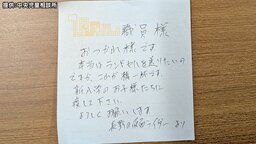 提供：中央児童相談所
職員様
おつかれ様です
本当はランドセルを送りたいの
ですが、これが精一杯です。
新入学のお子様たちに
渡して下さい。
よろしくお願いします
長野の仮面ライダーより